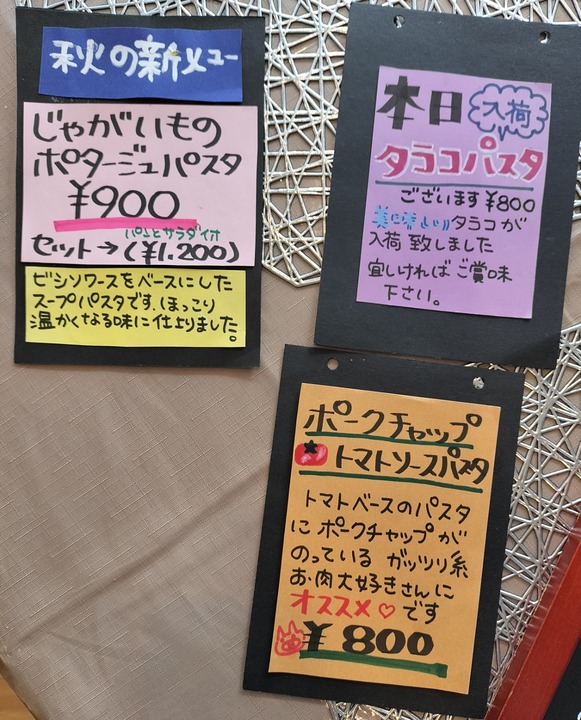 秋の新メニュー
じゃがいもの
ポタージュパスタ
¥900
パンとサラダイオ
セット→(¥1,200)
ビシソワースをベースにした
スープパスタです、ほっこり
温かくなる味に仕上りました。
本日
入荷
タラコパスタ
ございます¥800
美味しいタラコが
入荷致しました
宜しければご賞味
下さい。
ポークチャップ
トマトソースパスタ
トマトベースのパスタ
にポークチャップが
のっている ガッツリ糸
お肉大好きさんに
オススメ♡です
¥800